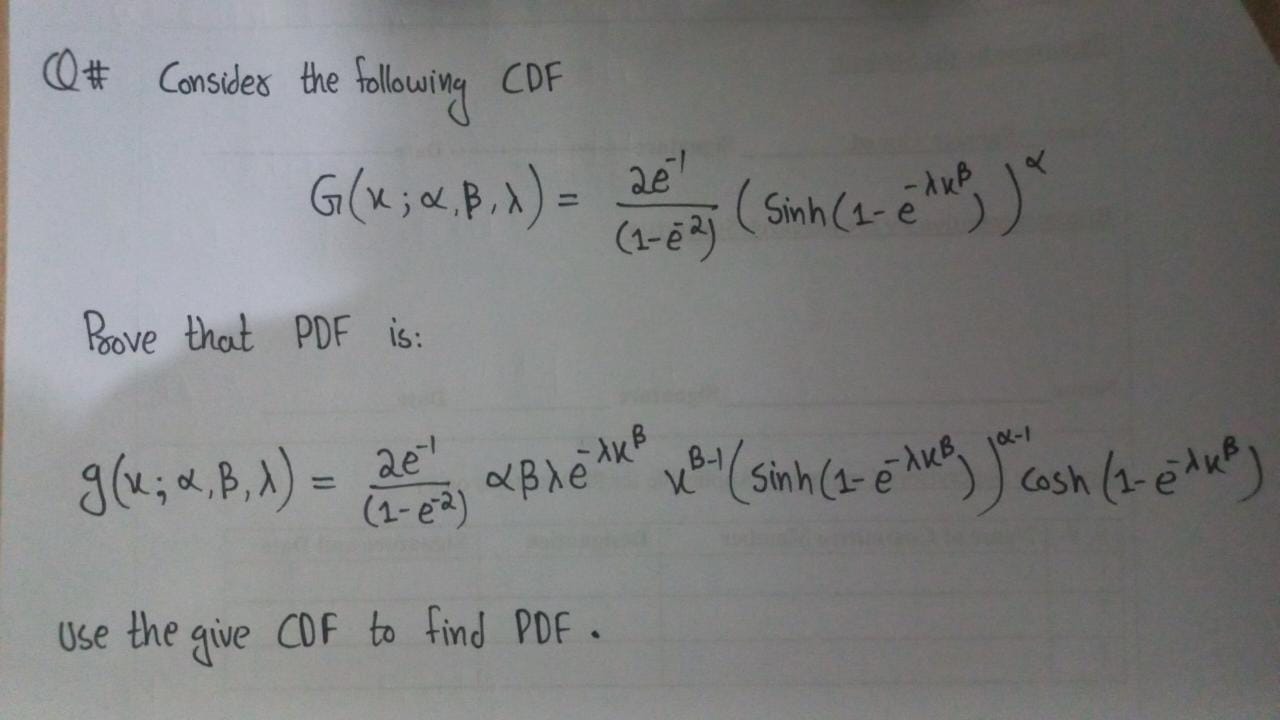 Q# Consider the following CDF
G(x; α, β, λ) = 2e⁻¹/(1-e⁻²) (Sinh(1-e^(-λx^β)))^α
Prove that PDF is:
g(x; α, β, λ) = 2e⁻¹/(1-e⁻²) αβλe^(-λx^β) x^(β-1) (Sinh(1-e^(-λx^β)))^(α-1) cosh(1-e^(-λx^β))
Use the give CDF to find PDF.